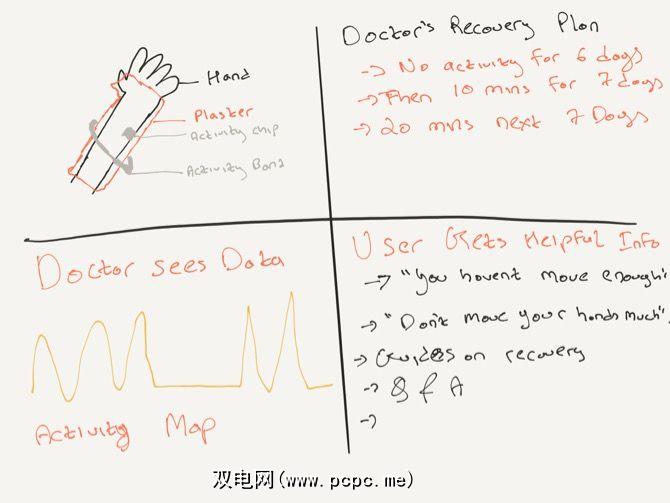 Hand
Plaster
Activity chip
Activity Band
Doctor's Recovery Plan
-> No activity for 6 days
-> Then 10 mins for 7 days
-> 20 mns next 7 Days
Doctor sees Data
Activity Map
User Gets Helpful Info
-> "You havent move enough"
-> "Don't move your hands much".
-> Guides on recovery
-> Q & A
->
双电网(www.pcpc.me)